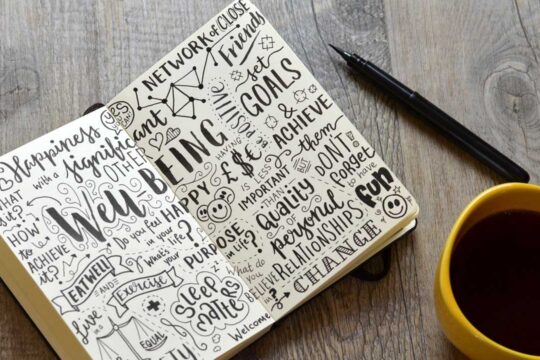 YES
Happiness
with a significant
WHAT is it?
OTHER
HOW to ACHIEVE it?
Well BEING
Do you feel HAPPY
in your life?
What's your PURPOSE in life?
EAT WELL
AND
Exercise
Sleep
MATTERS
Live in
EQUAL
What do you BELIEVE in?
Welcome
NETWORK of CLOSE
Friends
set
GOALS
&
ACHIEVE
them
HAVING
£€$
is LESS
IMPORTANT
THAN
quality
of
personal
RELATIONSHIPS
DON'T
forget
to have
fun
CHANGE